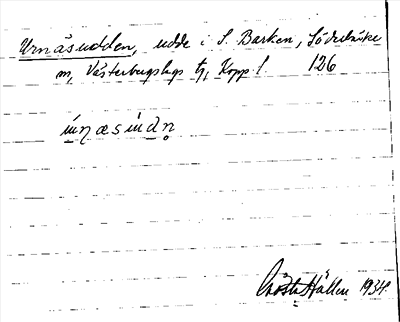 Urnäsudden, udde i S. Barken, Söderbärke
m, Västerbergslags tg, Kopp. l. 126
Gösta Hållen 1934.